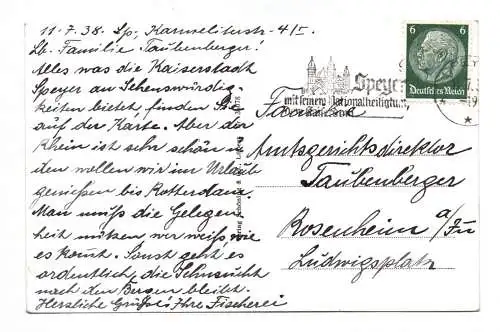 11.7.38. Sp., Karmeliterstr. 4/I.
Lb. Familie Taubenberger!
Alles was die Kaiserstadt
Speyer an Sehenswürdig-
keiten bietet finden Sie
auf der Karte. Aber der
Rhein ist sehr schön in
den wollen wir im Urlaub
genießen bis Rotterdam.
Man muß die Gelegen-
heit nützen wer weiß, wie
es kommt. Sonst geht es
ordentlich, die Sehnsucht
nach den Bergen bleibt.
Herzliche Grüße! Ihre Fischerei
6 6
Deutsches Reich
Speyer
mit seinem Nationalheiligtum
Familie
Amtsgerichtsdirektor
Taubenberger
Rosenheim a/Inn
Ludwigsplatz